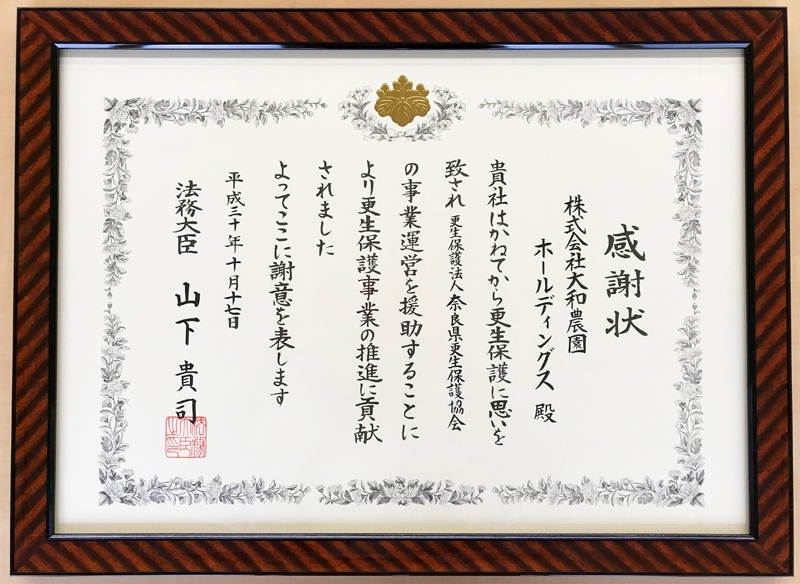 感謝状
株式会社大和農園
ホールディングス 殿
貴社はかねてから更生保護に思いを
致され 更生保護法人 奈良県更生保護協会
の事業運営を援助することに
より更生保護事業の推進に貢献
されました
よってここに謝意を表します
平成三十年十月十七日
法務大臣 山下貴司